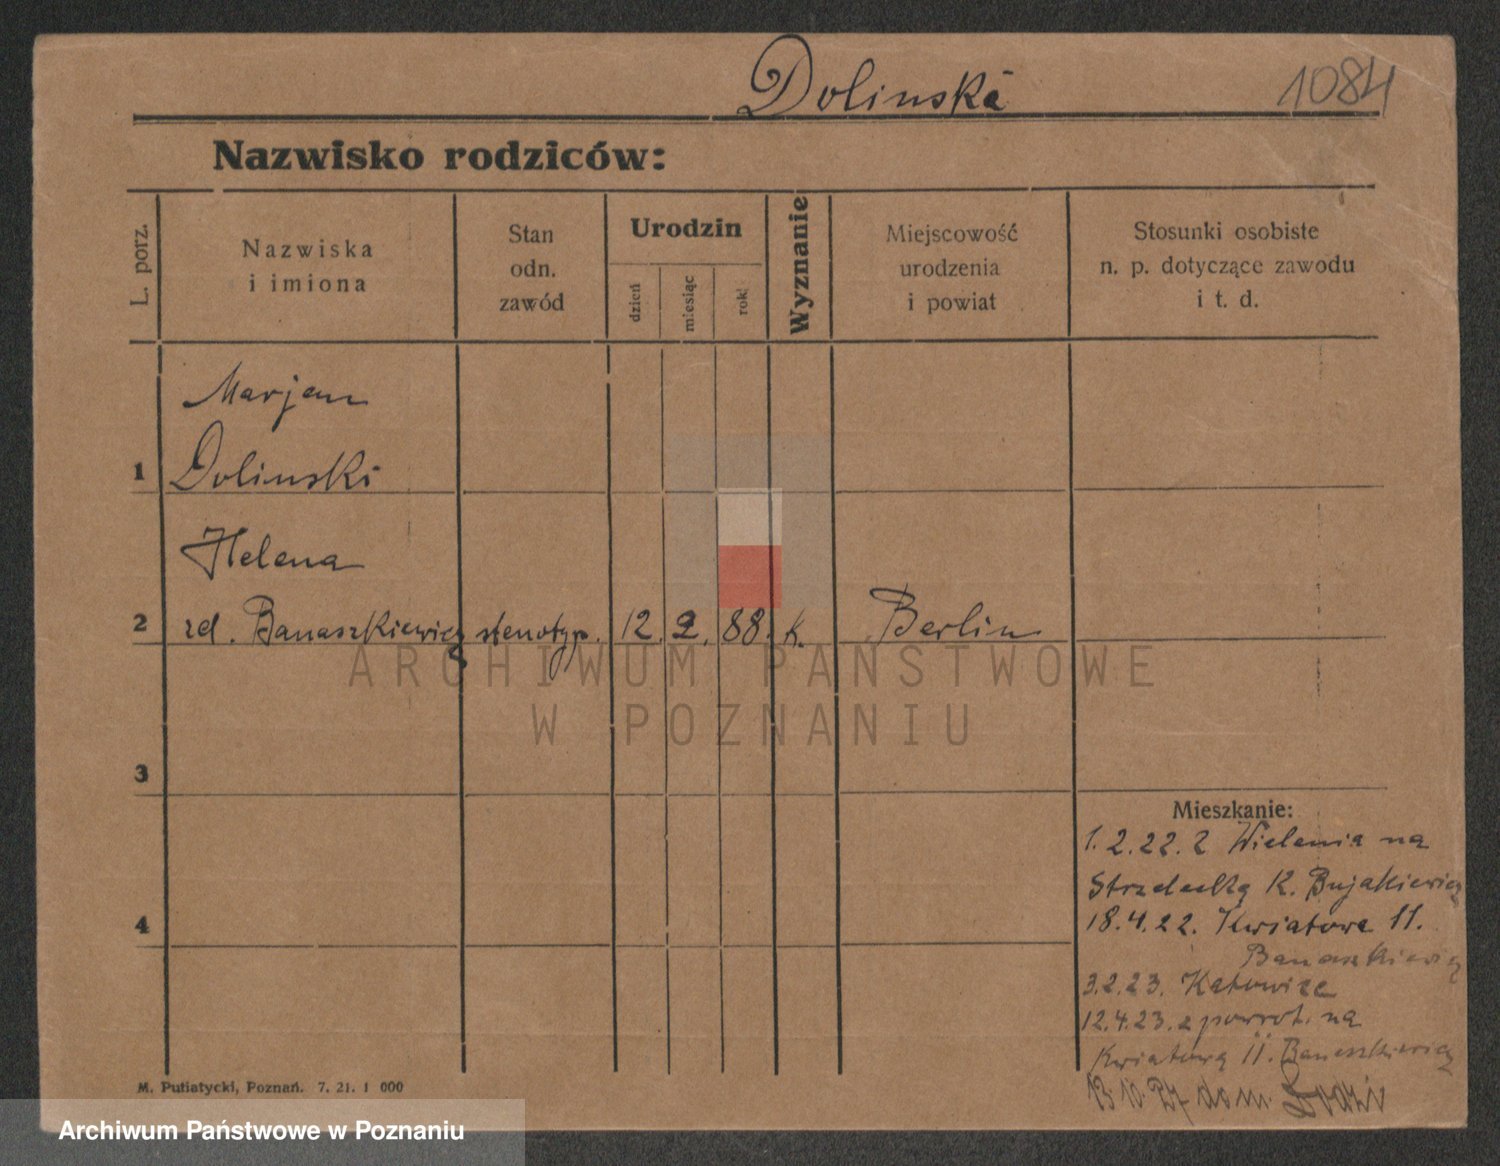 Dolinska
1084
Nazwisko rodziców:
L. porz.
Nazwiska
i imiona
Stan
odn.
zawód
Urodzin
dzień
miesiąc
rok
Wyznanie
Miejscowość
urodzenia
i powiat
Stosunki osobiste
n. p. dotyczące zawodu
i t. d.
Marjan
1 Dolinski
Helena
2 zd. Banaszkiewicz stenotyp. 12. 2. 88. k. Berlin
ARCHIWUM PAŃSTWOWE
W POZNANIU
3
Mieszkanie:
1. 2. 22. z Wielenia na
Strzelecką K. Bujakiewicz
4
18. 4. 22. Kwiatowa 11.
Banaszkiewicz
3. 2. 23. Katowice
12. 4. 23. z powrot. na
Kwiatową 11. Banaszkiewicz
13 10. 27 dom.
M. Putiatycki, Poznań. 7. 21. 1 000
Archiwum Państwowe w Poznaniu